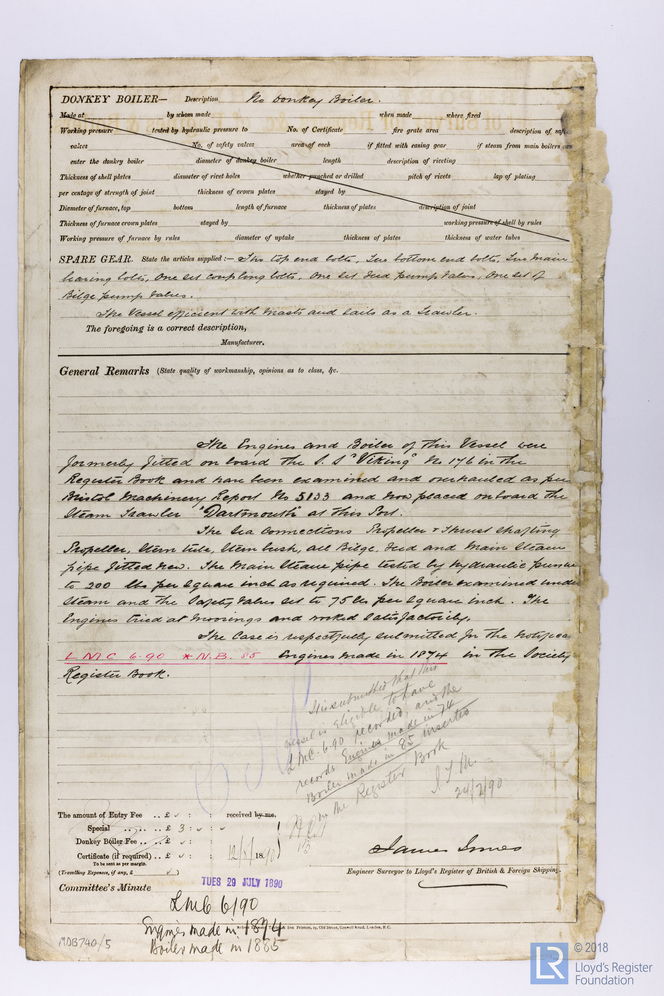 DONKEY BOILER— Description No Donkey Boiler.
Made at by whom made when made where fixed
Working pressure tested by hydraulic pressure to No. of Certificate fire grate area description of safety
valves No. of safety valves area of each if fitted with easing gear if steam from main boilers can
enter the donkey boiler diameter of donkey boiler length description of riveting
Thickness of shell plates diameter of rivet holes whether punched or drilled pitch of rivets lap of plating
per centage of strength of joint thickness of crown plates stayed by
Diameter of furnace, top bottom length of furnace thickness of plates description of joint
Thickness of furnace crown plates stayed by working pressure of shell by rules
Working pressure of furnace by rules diameter of uptake thickness of plates thickness of water tubes
SPARE GEAR. State the articles supplied:— Two top end bolts, Two bottom end bolts, Two main
bearing bolts, One set coupling bolts, One set feed pump valves, One set of
Bilge pump valves.
The Vessel efficient with masts and sails as a Trawler.
The foregoing is a correct description,
Manufacturer.
General Remarks (State quality of workmanship, opinions as to class, &c.
The Engines and Boiler of this Vessel were
formerly fitted on board the S.S "Viking" No 176 in the
Register Book and have been examined and overhauled as per
Bristol Machinery Report No 5133 and now placed onboard the
Steam Trawler "Dartmouth" at this Port.
The Sea Connections Propeller & Thrust shafting
Propeller, Stern tube, Stern bush, all Bilge, feed and Main Steam
pipe fitted new. The Main Steam pipe tested by hydraulic pressure
to 200 lbs per square inch as required. The Boiler examined under
steam and the Safety Valves set to 75 lbs per square inch. The
Engines tried at moorings and worked satisfactorily.
The case is respectfully submitted for the notification
LMC 6.90 *N.B. 85 Engines made in 1874 in the Society
Register Book.
It is submitted that this
vessel is eligible to have
LMC. 6.90 recorded, and the
records Engines made in 74
Boiler made in 85 inserted
in the Register Book
24/7/90
The amount of Entry Fee .. £ : : received by me.
Special .. .. £ 3 : :
Donkey Boiler Fee .. £ : :
Certificate (if required) .. £ : : 18
To be sent as per margin.
(Travelling Expenses, if any, £ )
James Innes
Engineer Surveyor to Lloyd's Register of British & Foreign Shipping.
TUES 29 JULY 1890
Committee's Minute
LMC 6/90
Engines made in 1874
Boiler made in 1885
MDB740/5
LR
© 2018
Lloyd's Register
Foundation